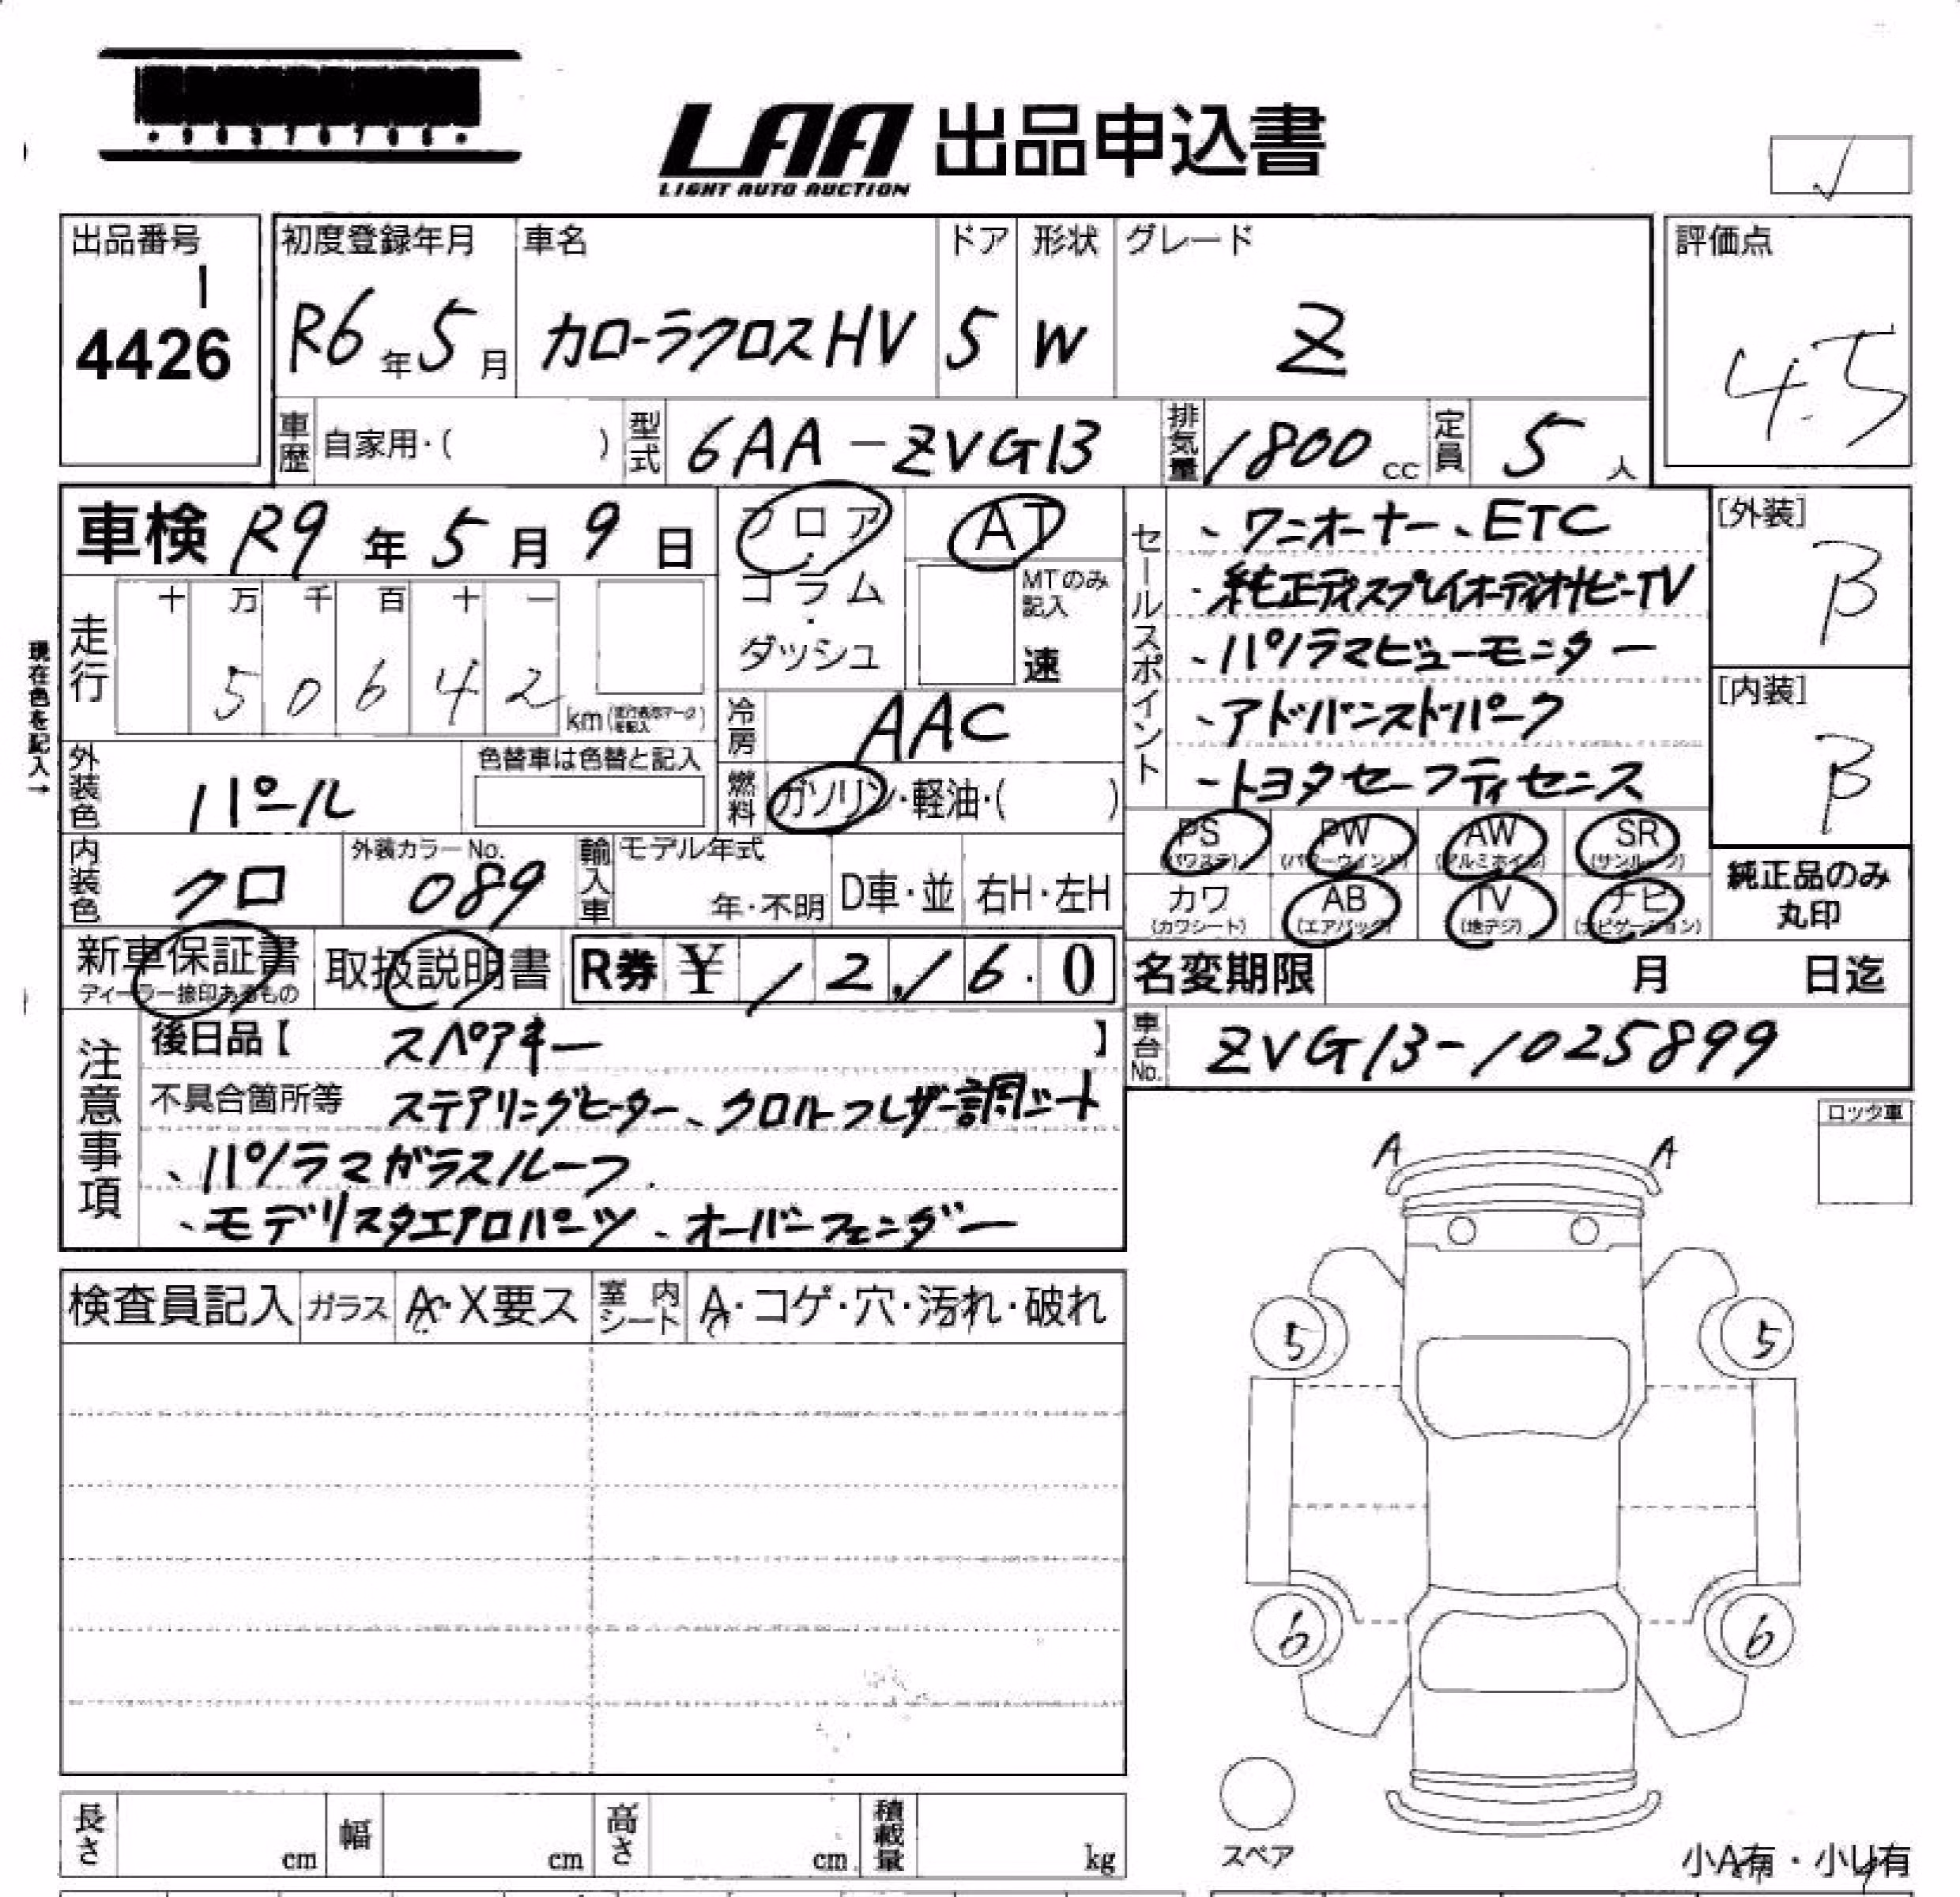 LAA 出品申込書
LIGHT AUTO AUCTION
出品番号
1
4426
初度登録年月
R6年5月
車名
カローラクロスHV
ドア
5
形状
W
グレード
Z
評価点
4.5
車歴 自家用・( )
型式 6AA-ZVG13
排気量 1800 cc
定員 5 人
車検 R9年5月9日
フロア・コラム・ダッシュ
AT
MTのみ記入
速
走行
十 万 千 百 十 一
5 0 6 4 2 km
現在色を記入→
冷房 AAC
燃料 ガソリン・軽油・( )
外装色 パール
色替車は色替と記入
内装色 クロ
外装カラーNo. 089
輸入車 モデル年式
年・不明
D車・並
右H・左H
セールスポイント
、ワンオーナー、ETC
・純正ディスプレイオーディオナビ-TV
、パノラマビューモニター
、アドバンストパーク
、トヨタセーフティセンス
[外装] B
[内装] B
PS (パワステ)
PW (パワーウインド)
AW (アルミホイル)
SR (サンルーフ)
カワ (カワシート)
AB (エアバッグ)
TV (地デジ)
ナビ (ナビゲーション)
純正品のみ丸印
新車保証書
ディーラー捺印あるもの
取扱説明書
R券 ¥ 12,160
名変期限 月 日迄
車台No. ZVG13-1025899
注意事項
後日品【 スペアキー 】
不具合箇所等 ステアリングヒーター、クロルーフレザー調シート
、パノラマガラスルーフ
、モデリスタエアロパーツ、オーバーフェンダー
検査員記入 ガラス A・X要ス
室内シート A・コゲ・穴・汚れ・破れ
ロック車
A A
5 5
6 6
スペア
小A有・小U有
長さ cm
幅 cm
高さ cm
積載量 kg